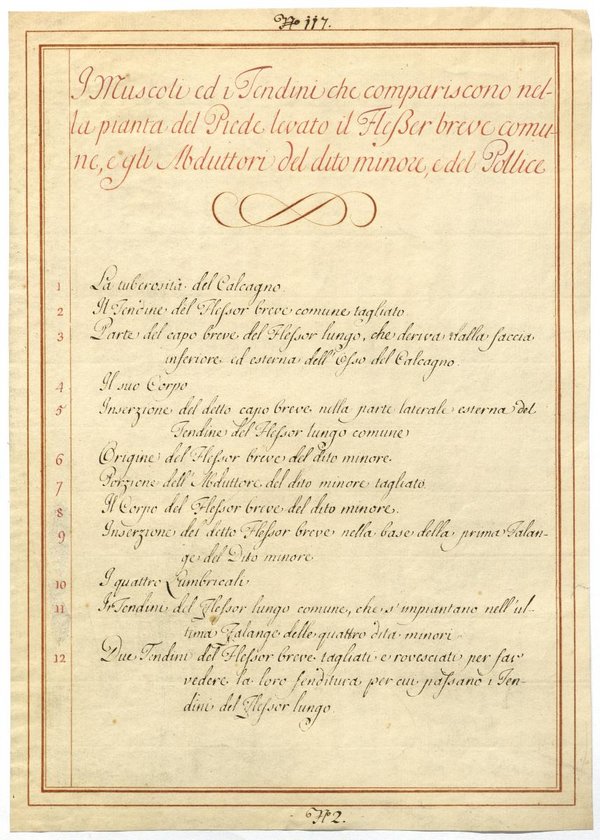 No 117.
I Muscoli ed i Tendini che compariscono nel-
la pianta del Piede levato il Fleßer breve comu-
ne, e gli Abduttori del dito minore, e del Pollice
1 La tuberosità del Calcagno.
2 Il Tendine del Flessor breve comune tagliato
3 Parte del capo breve del Flessor lungo, che deriva dalla faccia
inferiore ed esterna dell'Osso del Calcagno.
4 Il suo Corpo
5 Inserzione del detto capo breve nella parte laterale esterna del
Tendine del Flessor lungo comune
6 Origine del Flessor breve del dito minore.
7 Porzione dell'Abduttore del dito minore tagliato.
8 Il Corpo del Flessor breve del dito minore.
9 Inserzione del detto Flessor breve nella base della prima Falan-
ge del Dito minore
10 I quattro Lumbricali
11 I Tendini del Flessor lungo comune, che s'impiantano nell'ul-
tima Falange delle quattro dita minori.
12 Due Tendini del Flessor breve tagliati e rovesciati per far
vedere la loro fenditura per cui passano i Ten-
dini del Flessor lungo.
No 2.